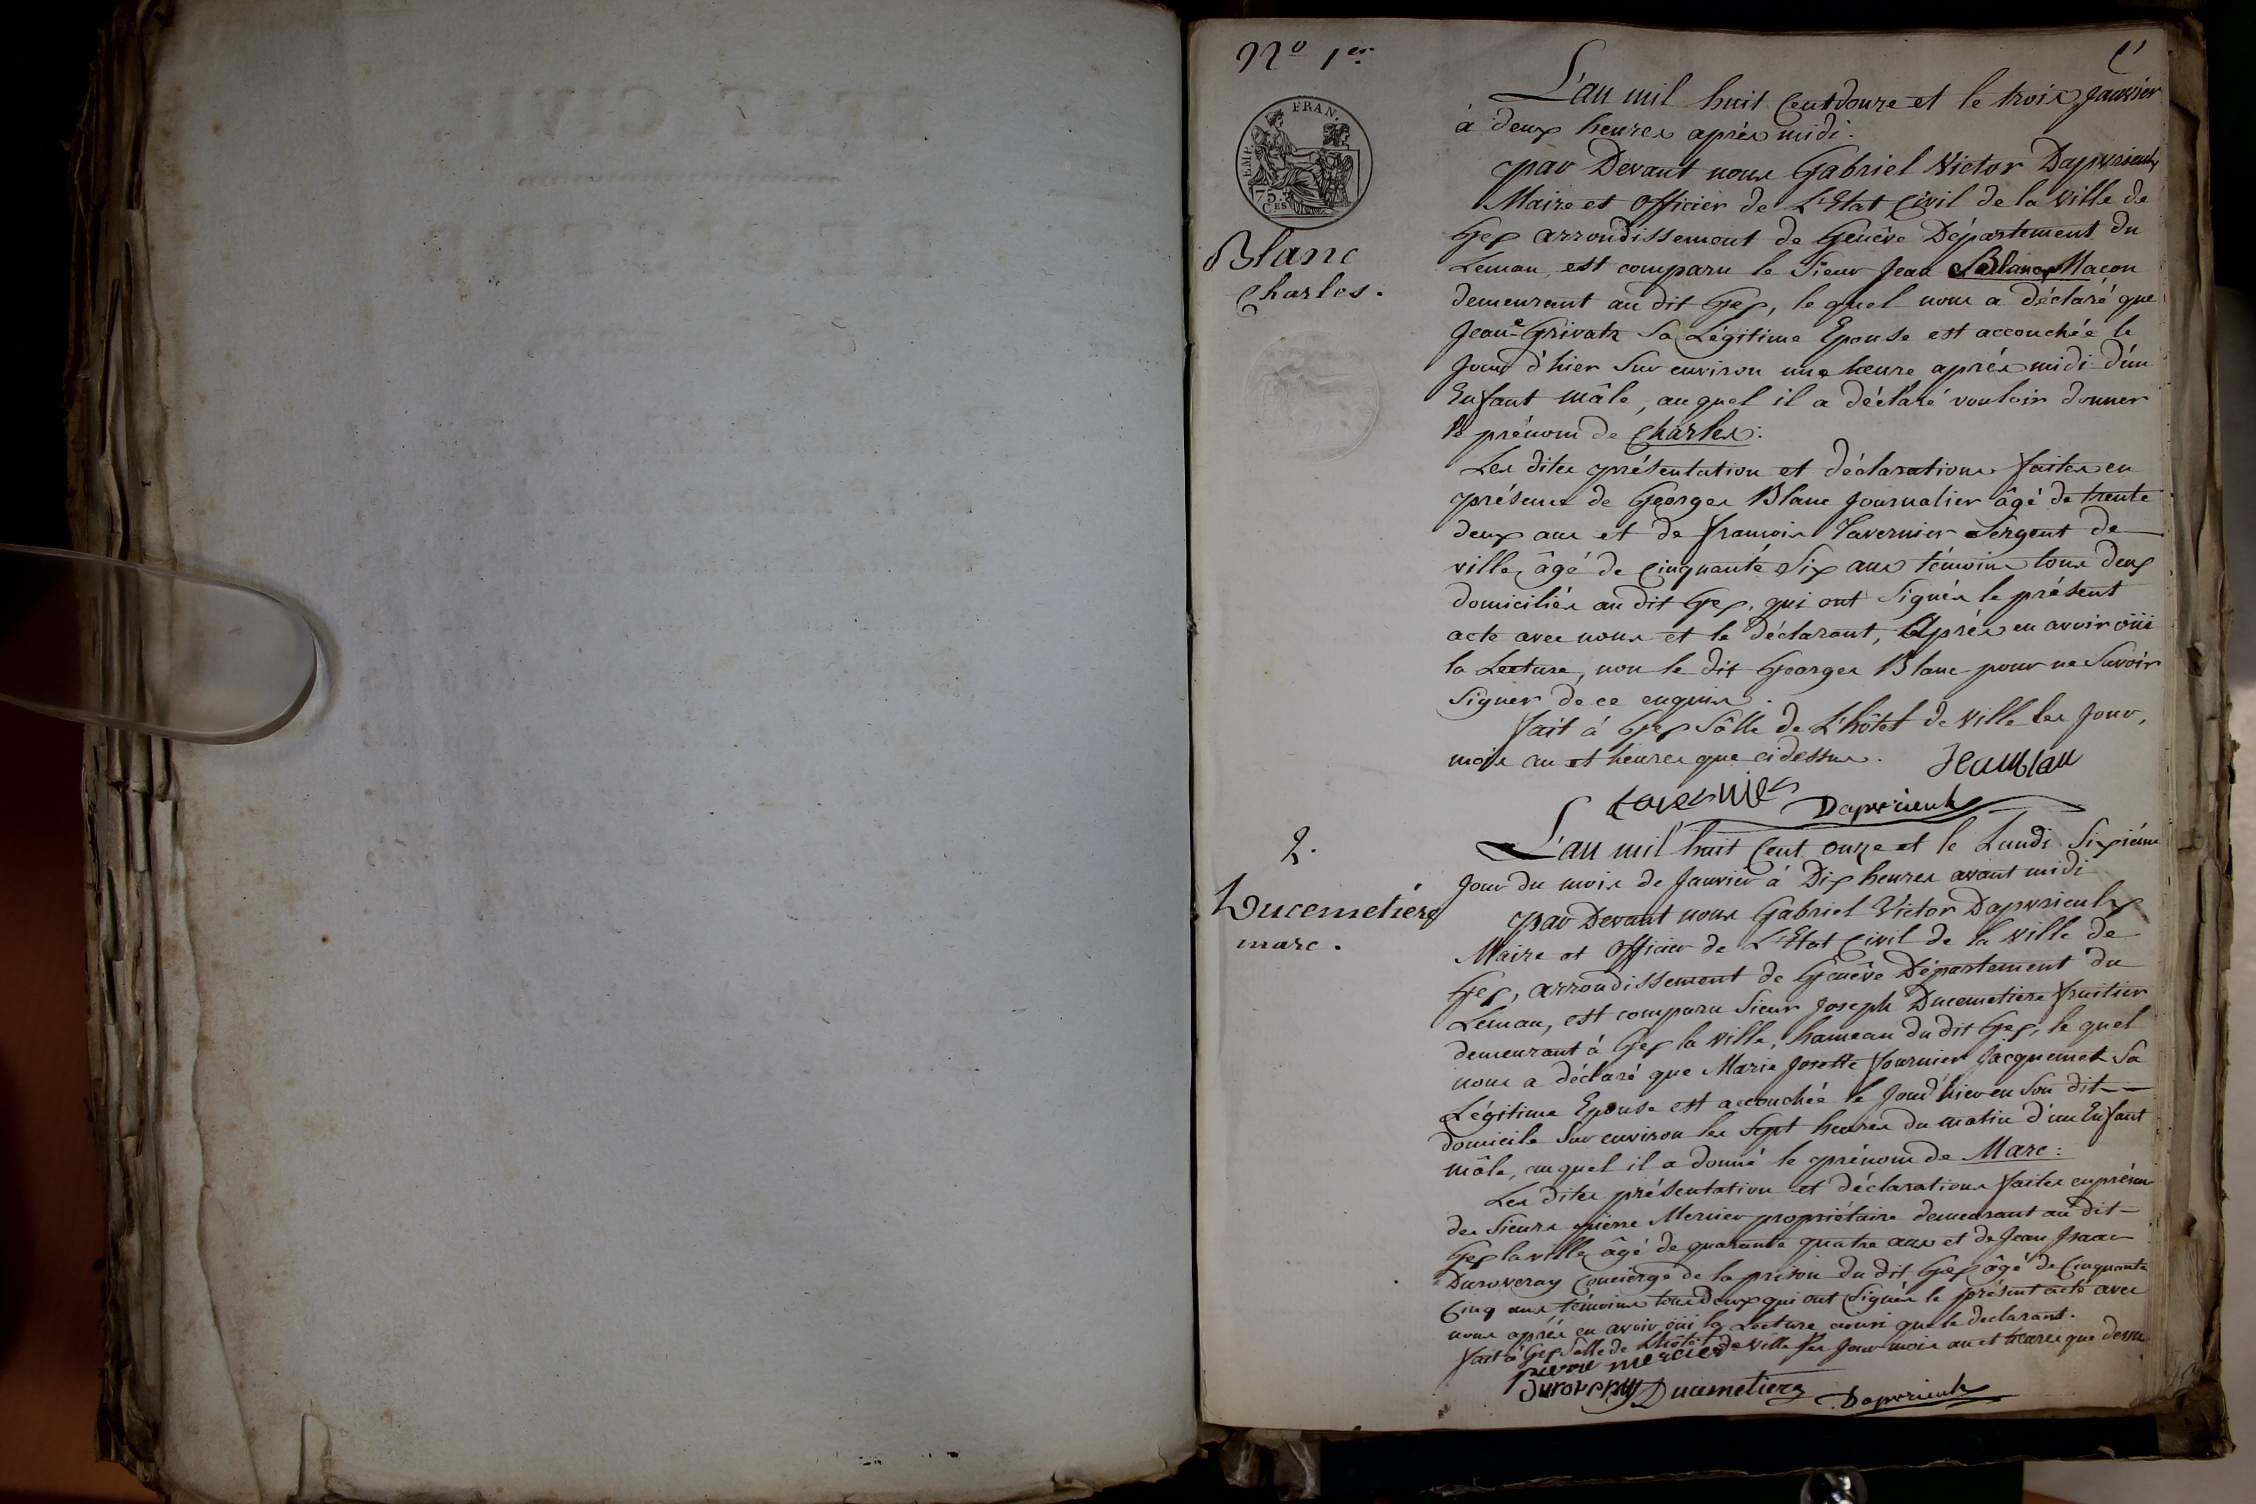 Nº 1er
L'an mil huit Cent douze et le trois Janvier
à deux heures après midi.
EMP. FRAN.
75 CES
par Devant nous Gabriel Victor
Maire et Officier de L'Etat Civil de la Ville de
Gex arrondissement de Genève Département du
Blanc
Charles.
Leman, est comparu le Sieur Jean Blanc Maçon
demeurant au dit Gex, le quel nous a déclaré que
Jeane Grivatz Sa Légitime Epouse est accouchée le
Jour d'hier Sur environ une heure après midi d'un
Enfant mâle, au quel il a déclaré vouloir donner
le prénom de Charles:
Les dites présentation et déclarations faites en
présence de Georges Blanc Journalier âgé de trente
deux ans et de francois Tavernier Sergent de
ville, âgé de Cinquante Six ans témoins tous deux
domiciliés au dit Gex, qui ont Signés le présent
acte avec nous et le déclarant, Après en avoir oüi
la Lecture, non le dit Georges Blanc pour ne Savoir
Signer de ce enquis.
fait à Gex Sâlle de L'hôtel de Ville les Jour,
mois an et heures que cidessus. Jean blan
tavernier
2.
L'an mil huit Cent onze et le Lundi Sixiéme
Jour du mois de Janvier à Dix heures avant midi
Ducemetiere
marc.
par Devant nous Gabriel Victor
Maire et Officier de L'Etat Civil de la Ville de
Gex, arrondissement de Genêve Département du
Leman, est comparu Sieur Joseph Ducemetiere fruitier
demeurant à Gex la Ville, hameau du dit Gex, le quel
nous a déclaré que Marie Josette fournier Jacquemet Sa
Légitime Epouse est accouchée le Jour d'hier en Son dit
domicile Sur environ les Sept heures du matin d'un Enfant
mâle, au quel il a donné le prénom de Marc:
Les dites présentation et déclarations faites en présence
des Sieurs pierre Mercier propriétaire demeurant au dit
Gex la ville âgé de quarante quatre ans et de Jean Isaac
Duroveray Concierge de la prison du dit Gex âgé de Cinquante
Cinq ans témoins tous deux qui ont Signés le présent acte avec
nous après en avoir oüi la Lecture que le declarant.
fait à Gex Salle de L'hôtel de Ville les Jour mois an et heures que dessus
pierre mercier
Duroveray Ducimetiere